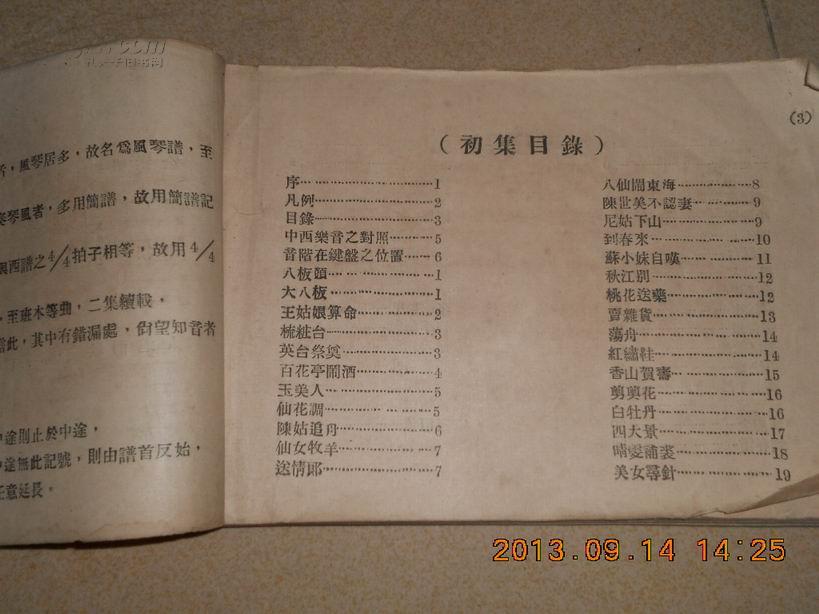 者，風琴居多，故名爲風琴譜，至
奏琴風者，多用簡譜，故用簡譜記
與西譜之4/4拍子相等，故用4/4
，至班本等曲，二集續載，
此，其中有錯漏處，尙望知音者
中途則止於中途，
途無此記號，則由譜首反始，
任意延長。
(3)
（初集目錄）
序………1
凡例………2
目錄………3
中西樂音之對照………5
音階在鍵盤之位置………6
八板頭………1
大八板………1
王姑娘算命………2
梳粧台………3
英台祭奠………3
百花亭鬧酒………4
玉美人………5
仙花調………5
陳姑追舟………6
仙女牧羊………7
送情郎………7
八仙鬧東海………8
陳世美不認妻………9
尼姑下山………9
到春來………10
蘇小妹自嘆………11
秋江別………12
桃花送藥………12
賣雜貨………13
蕩舟………14
紅繡鞋………14
香山賀壽………15
剪剪花………16
白牡丹………16
四大景………17
晴雯補裘………18
美女尋針………19
2013.09.14 14:25